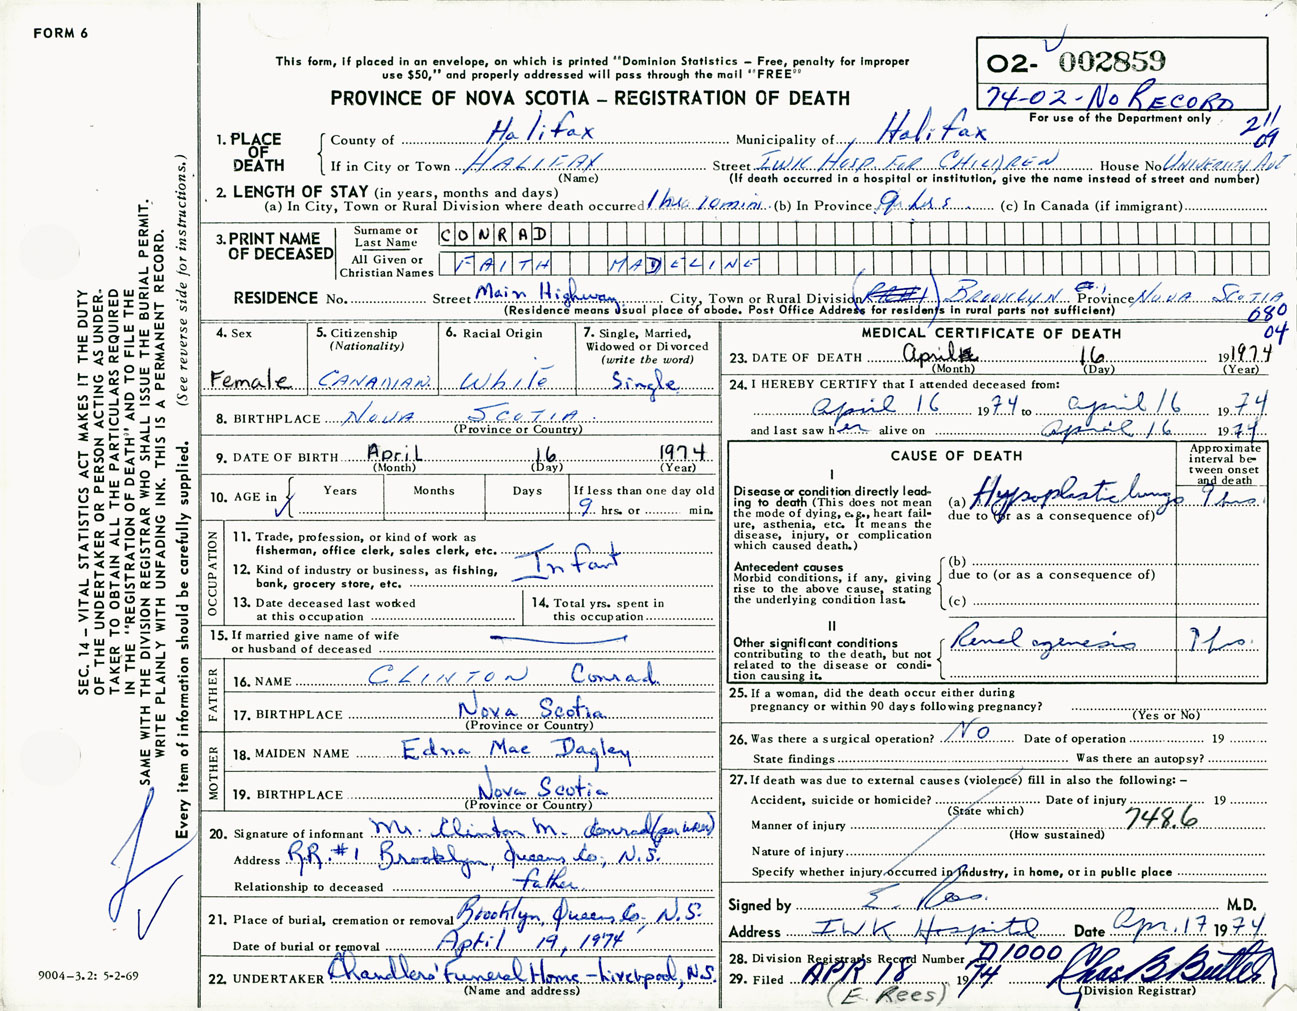 FORM 6
This form, if placed in an envelope, on which is printed "Dominion Statistics – Free, penalty for improper
use $50," and properly addressed will pass through the mail "FREE"
PROVINCE OF NOVA SCOTIA – REGISTRATION OF DEATH
O2- 002859
74-02-No RECORD
For use of the Department only
211
09
1. PLACE OF DEATH
County of Halifax Municipality of Halifax
If in City or Town HALIFAX Street IWK HOSP. FOR CHILDREN House No UNIVERSITY AVE
(Name) (If death occurred in a hospital or institution, give the name instead of street and number)
2. LENGTH OF STAY (in years, months and days)
(a) In City, Town or Rural Division where death occurred 1 hrs 10 min. (b) In Province 9 hrs. (c) In Canada (if immigrant)
3. PRINT NAME OF DECEASED
Surname or Last Name CONRAD
All Given or Christian Names FAITH MADELINE
RESIDENCE No. Street Main Highway City, Town or Rural Division (RR#1) BROOKLYN Province NOVA SCOTIA
(Residence means usual place of abode. Post Office Address for residents in rural parts not sufficient)
680
04
4. Sex Female
5. Citizenship (Nationality) CANADIAN
6. Racial Origin White
7. Single, Married, Widowed or Divorced (write the word) Single
8. BIRTHPLACE NOVA SCOTIA
(Province or Country)
9. DATE OF BIRTH April 16 1974
(Month) (Day) (Year)
10. AGE in Years Months Days If less than one day old
9 hrs. or min.
OCCUPATION
11. Trade, profession, or kind of work as
fisherman, office clerk, sales clerk, etc.
Infant
12. Kind of industry or business, as fishing,
bank, grocery store, etc.
13. Date deceased last worked
at this occupation
14. Total yrs. spent in
this occupation
15. If married give name of wife
or husband of deceased
FATHER
16. NAME CLINTON Conrad
17. BIRTHPLACE Nova Scotia
(Province or Country)
MOTHER
18. MAIDEN NAME Edna Mae Dagley
19. BIRTHPLACE Nova Scotia
(Province or Country)
20. Signature of informant Mr. Clinton M. Conrad
Address R.R. #1 Brooklyn, Queens Co., N.S.
Relationship to deceased father
21. Place of burial, cremation or removal Brooklyn, Queens Co., N.S.
Date of burial or removal April 19, 1974
22. UNDERTAKER Chandlers' Funeral Home – Liverpool, N.S.
(Name and address)
MEDICAL CERTIFICATE OF DEATH
23. DATE OF DEATH April 16 191974
(Month) (Day) (Year)
24. I HEREBY CERTIFY that I attended deceased from:
April 16 1974 to April 16 1974
and last saw her alive on April 16 1974
CAUSE OF DEATH
Approximate interval between onset and death
I
Disease or condition directly leading to death (This does not mean the mode of dying, e.g., heart failure, asthenia, etc. It means the disease, injury, or complication which caused death.)
(a) Hypoplastic lungs 9 hrs.
due to (or as a consequence of)
Antecedent causes
Morbid conditions, if any, giving rise to the above cause, stating the underlying condition last.
(b)
due to (or as a consequence of)
(c)
II
Other significant conditions
contributing to the death, but not related to the disease or condition causing it.
Renal agenesis 9 hrs.
25. If a woman, did the death occur either during
pregnancy or within 90 days following pregnancy?
(Yes or No)
26. Was there a surgical operation? No Date of operation 19
State findings Was there an autopsy?
27. If death was due to external causes (violence) fill in also the following: –
Accident, suicide or homicide? Date of injury 19
(State which)
Manner of injury 748.6
(How sustained)
Nature of injury
Specify whether injury occurred in industry, in home, or in public place
Signed by E. Rees M.D.
Address IWK Hospital Date Apr. 17 1974
28. Division Registrar's Record Number D1000
29. Filed APR 18 1974 Chas B Butler
(E. Rees) (Division Registrar)
SEC. 14 – VITAL STATISTICS ACT MAKES IT THE DUTY
OF THE UNDERTAKER OR PERSON ACTING AS UNDER-
TAKER TO OBTAIN ALL THE PARTICULARS REQUIRED
IN THE "REGISTRATION OF DEATH" AND TO FILE THE
SAME WITH THE DIVISION REGISTRAR WHO SHALL ISSUE THE BURIAL PERMIT.
WRITE PLAINLY WITH UNFADING INK. THIS IS A PERMANENT RECORD.
Every item of information should be carefully supplied. (See reverse side for instructions.)
9004–3.2: 5-2-69